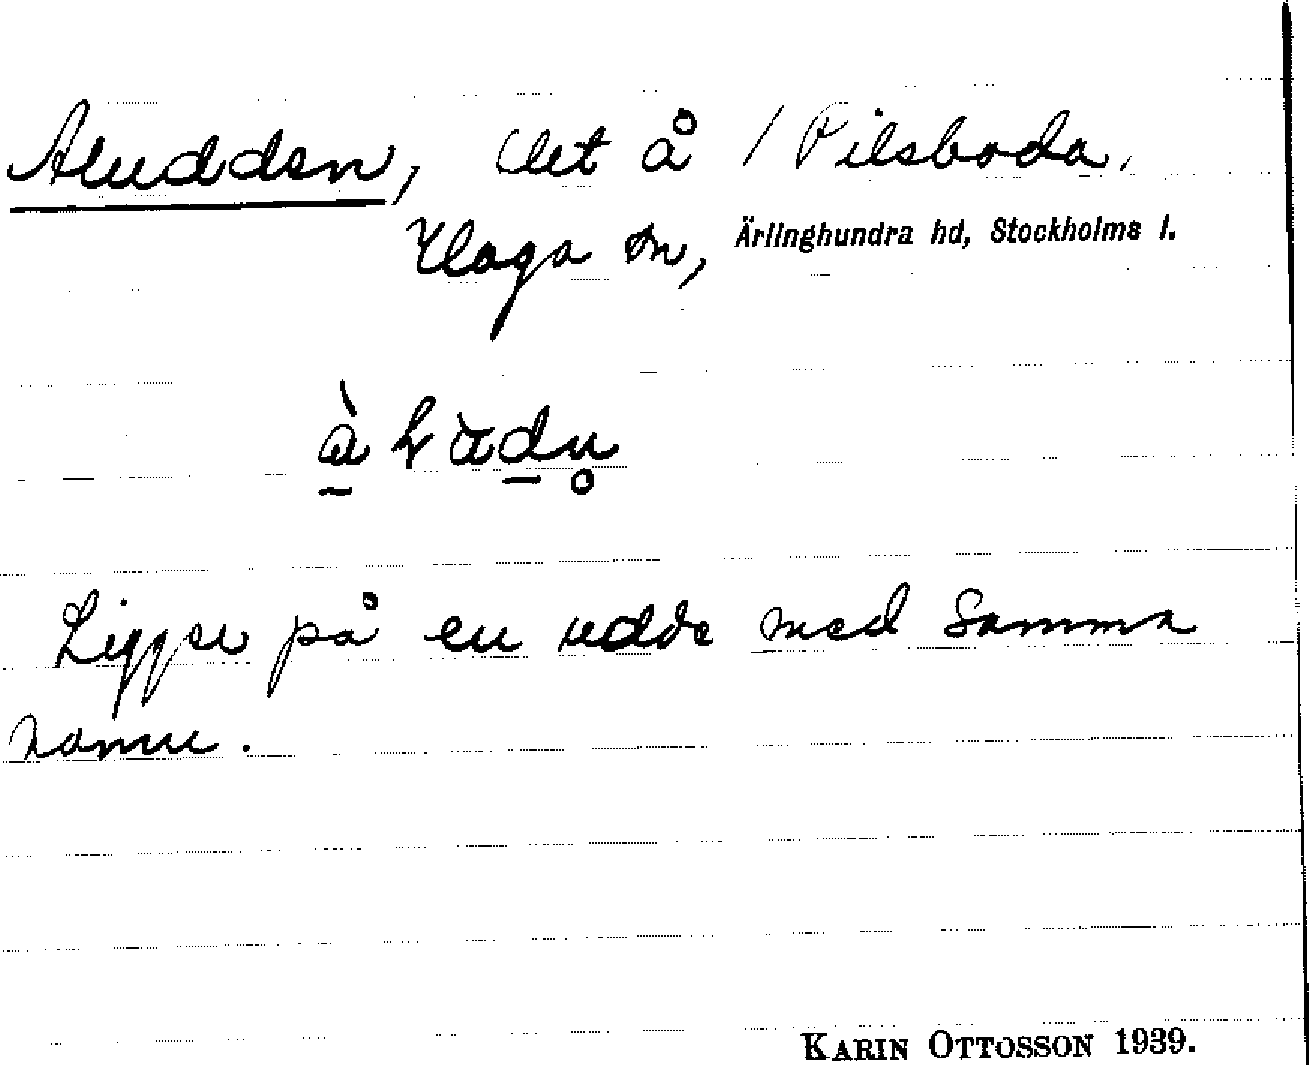 Aludden, lht å / Pilsboda,
Haga sn, Ärlinghundra hd, Stockholms l.
Ligger på en udde med samma
namn.
KARIN OTTOSSON 1939.